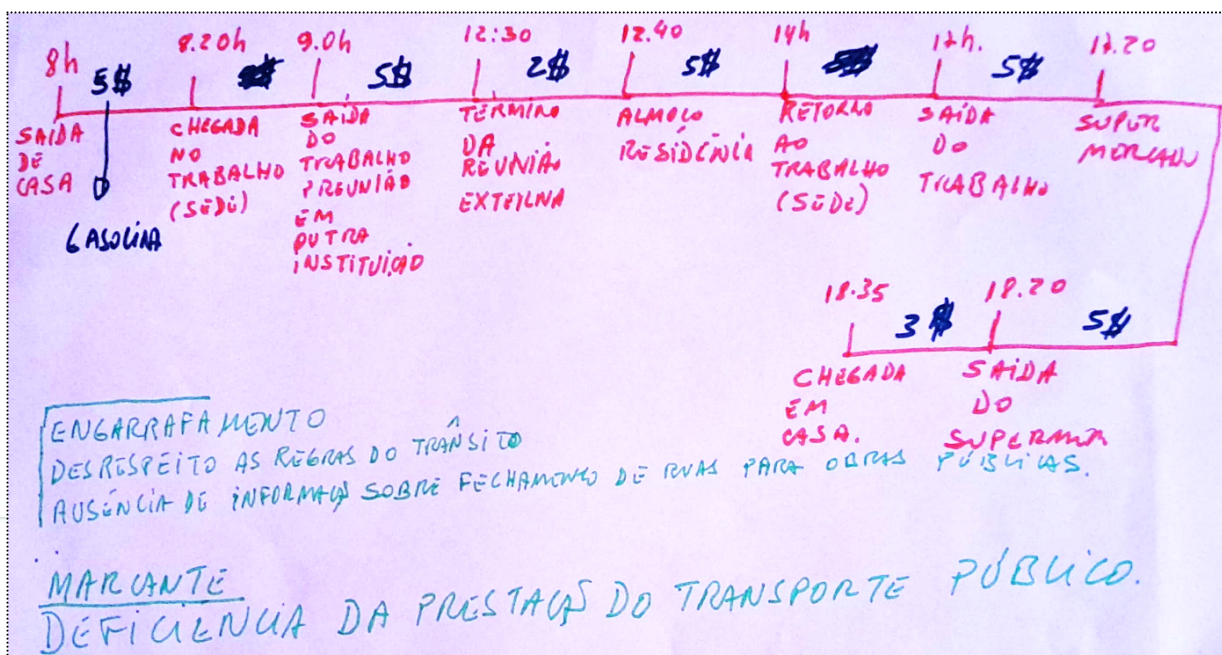 8h
5$
8.20h
9.0h
5$
12:30
2$
12.40
5$
14h
17h.
5$
17.20
SAIDA
DE
CASA
GASOLINA
CHEGADA
NO
TRABALHO
(SEDE)
SAÍDA
DO
TRABALHO
P REUNIÃO
EM
OUTRA
INSTITUIÇÃO
TÉRMINO
DA
REUNIÃO
EXTERNA
ALMOÇO
RESIDÊNCIA
RETORNO
AO
TRABALHO
(SEDE)
SAÍDA
DO
TRABALHO
SUPER
MERCADO
18.35
3$
18.20
5$
CHEGADA
EM
CASA.
SAÍDA
DO
ENGARRAFAMENTO
DESRESPEITO AS REGRAS DO TRÂNSITO
AUSÊNCIA DE INFORMAÇÃO SOBRE FECHAMENTO DE RUAS PARA OBRAS PÚBLICAS.
MARCANTE
DEFICIENCIA DA PRESTAÇÃO DO TRANSPORTE PÚBLICO.